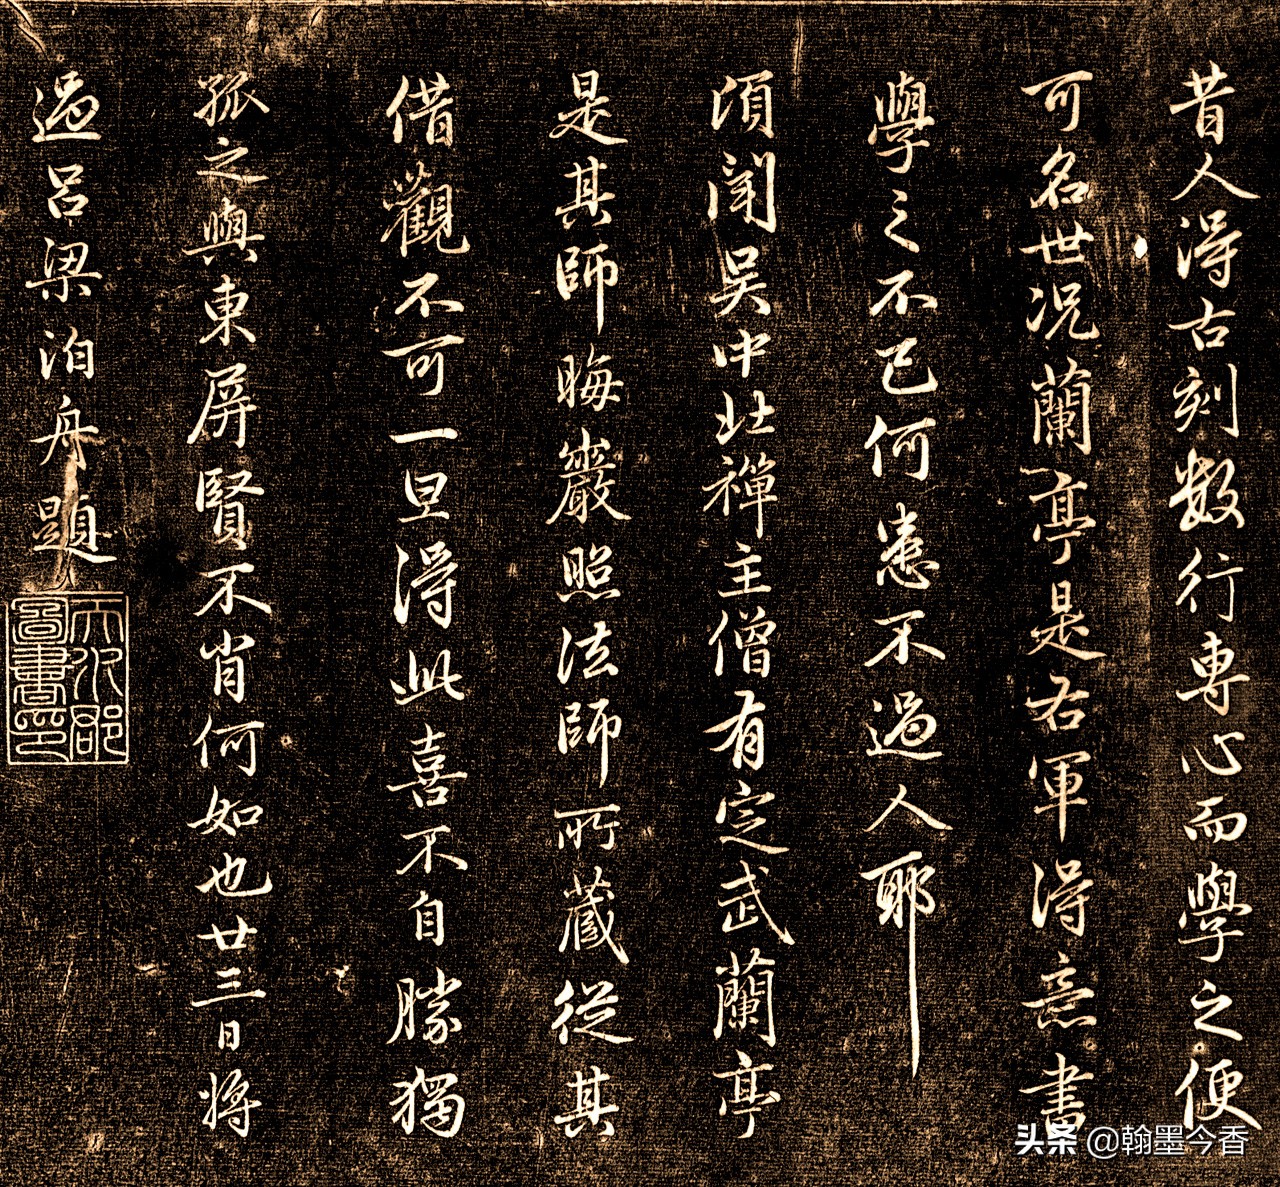 昔人得古刻数行專心而學之便
可名世况蘭亭是右軍得意書
學之不已何患不過人耶
頃聞吴中北禪主僧有定武蘭亭
是其師晦巖照法師所藏從其
借觀不可一旦得此喜不自勝獨
孤之與東屏賢不肖何如也廿三日將
過吕梁泊舟題
天水郡
圖書印
头条 @翰墨今香